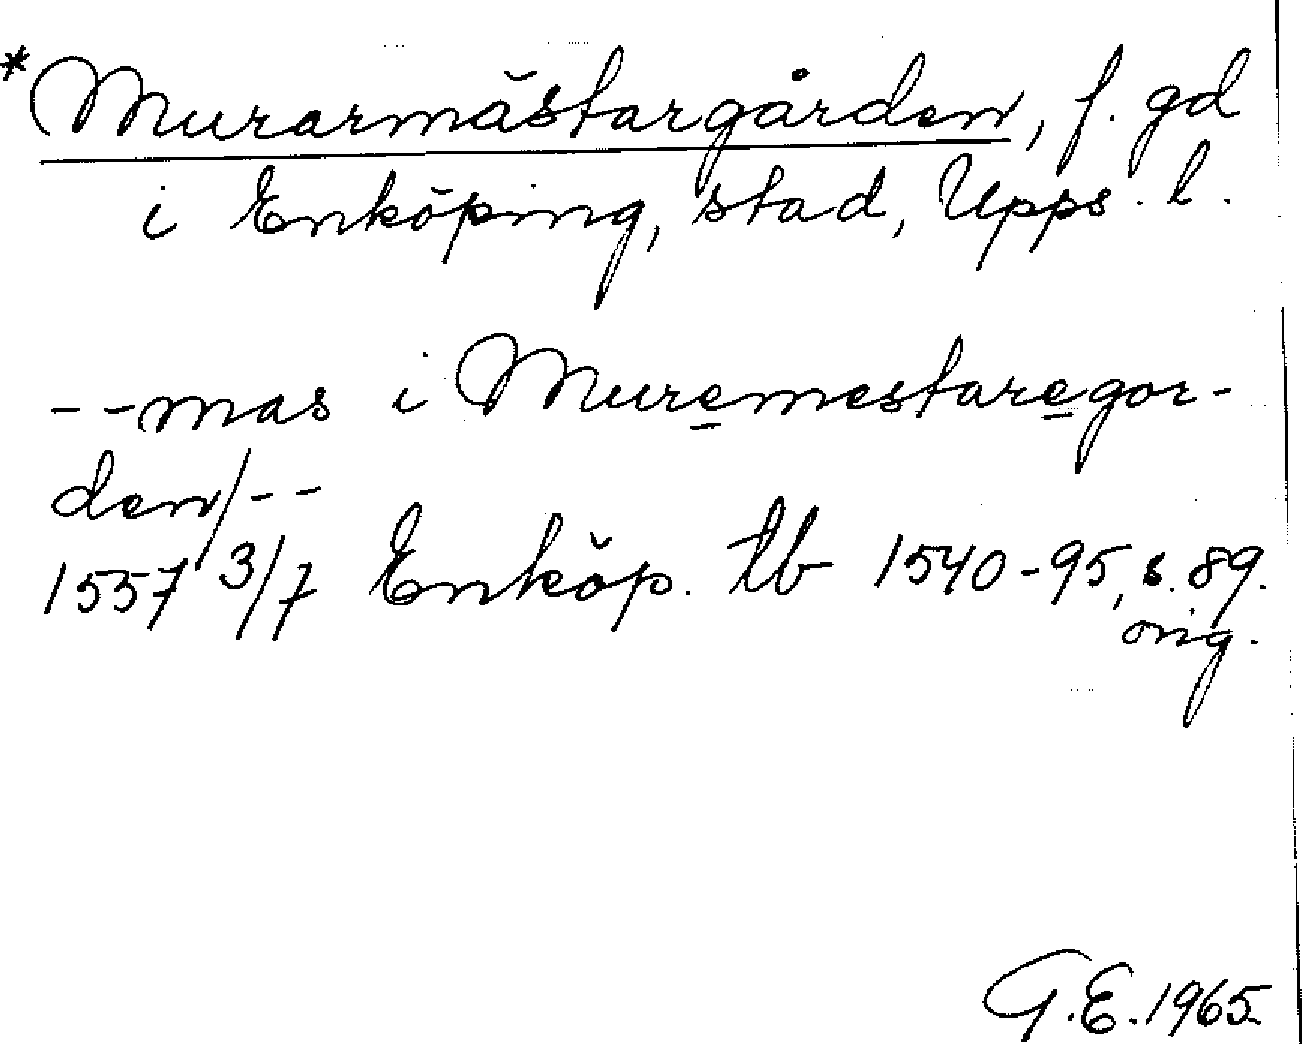 *Murarmästargården, f. gd
i Enköping, stad, Upps. l.
- -mas i Muremestaregor-
den/- -
1557 3/7 Enköp. tb 1540-95, s. 89.
orig.
G.E. 1965.